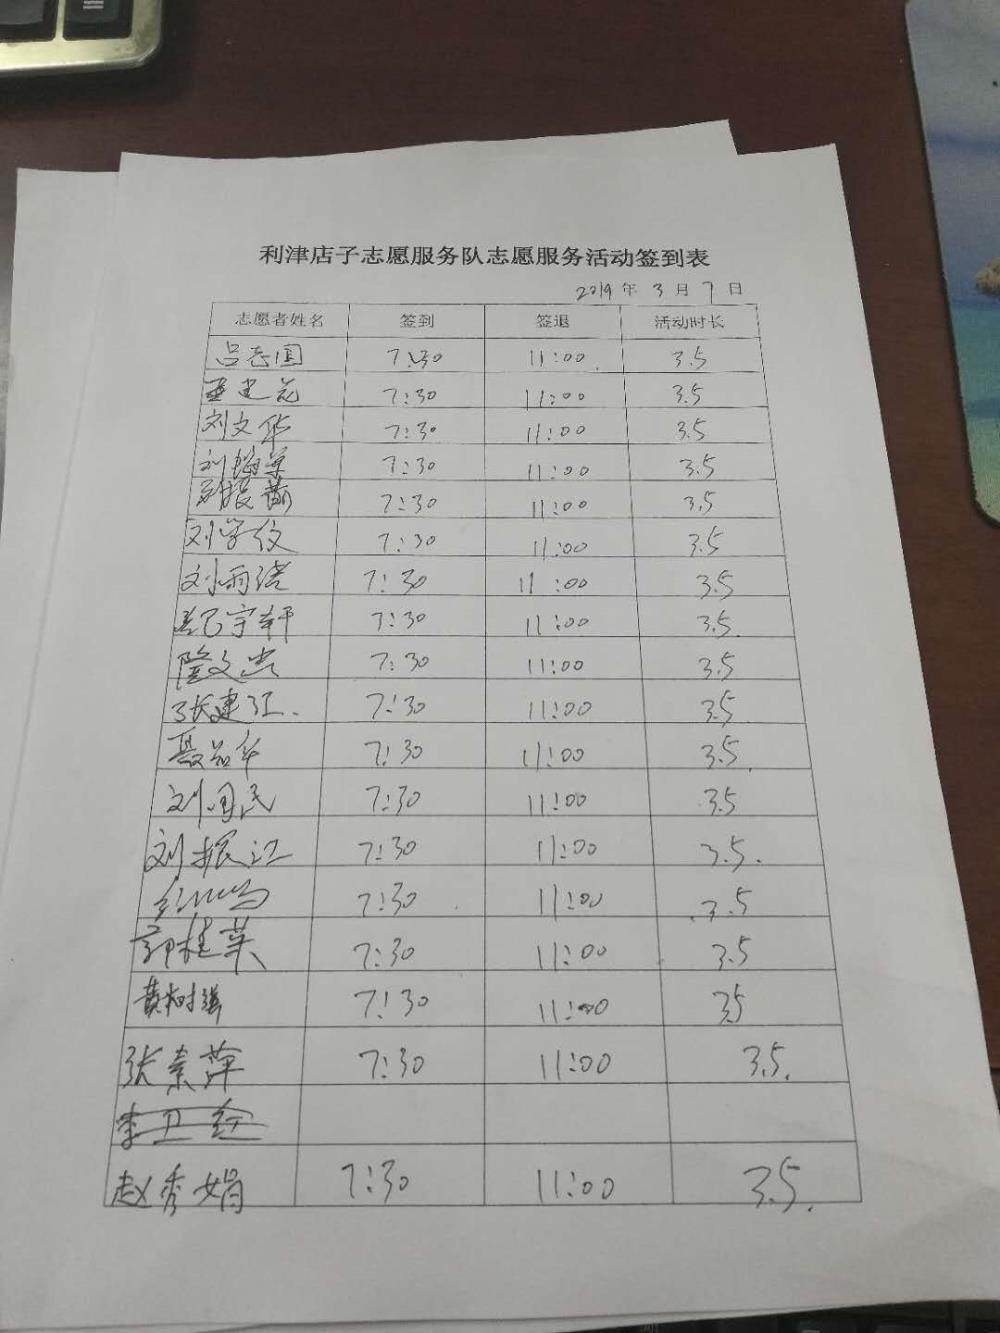 利津店子志愿服务队志愿服务活动签到表
2019 年 3 月 7 日
志愿者姓名 签到 签退 活动时长
吕志国 7:30 11:00 3.5
7:30 11:00 3.5
刘文华 7:30 11:00 3.5
刘 7:30 11:00 3.5
7:30 11:00 3.5
刘学纹 7:30 11:00 3.5
刘雨诺 7:30 11:00 3.5
宇轩 7:30 11:00 3.5
隆文忠 7:30 11:00 3.5
张建江. 7:30 11:00 3.5
聂 华 7:30 11:00 3.5
刘国民 7:30 11:00 3.5
刘振江 7:30 11:00 3.5.
7:30 11:00 3.5
郭桂英 7:30 11:00 3.5
黄树强 7:30 11:00 3.5
张素萍 7:30 11:00 3.5.
李卫红
赵秀娟 7:30 11:00 3.5.